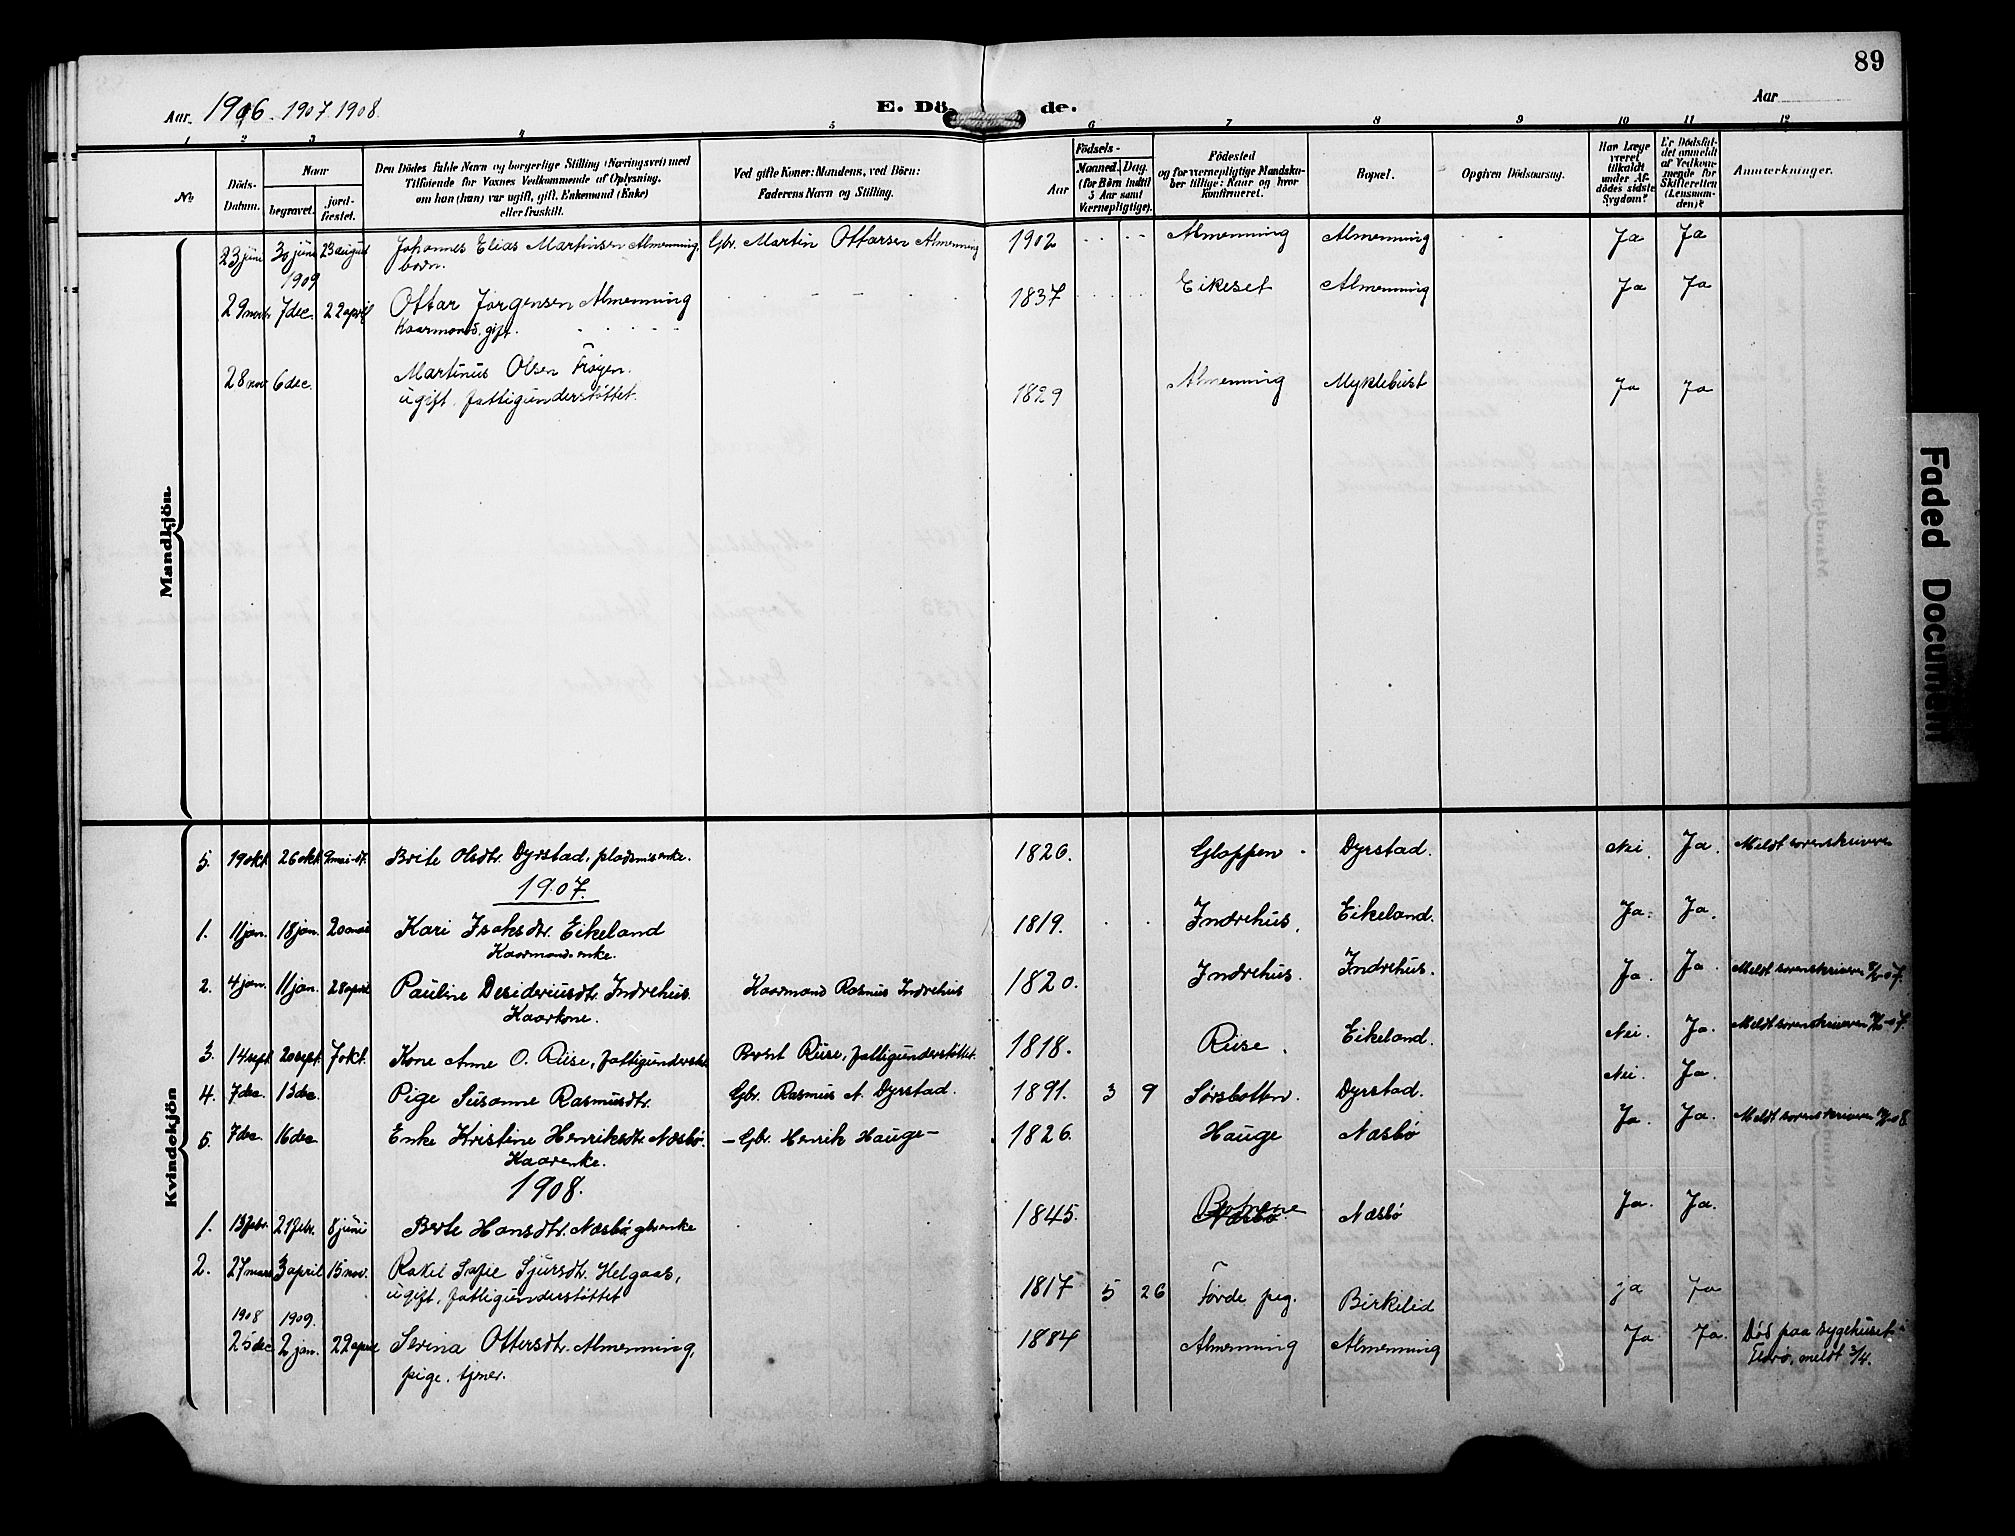 89
Aar 1906. 1907. 1908.
E. Döde.
Aar
1 2 3 4 5 6 7 8 9 10 11 12
No
Döds-Datum.
Naar
begravet.
jord-fæstet.
Den Dödes fulde Navn og borgerlige Stilling (Næringsvei) med
Tilföiende for Voxnes Vedkommende af Oplysning,
om han (hun) var ugift, gift, Enkemand (Enke)
eller fraskilt.
Ved gifte Koner: Mandens, ved Börn:
Faderens Navn og Stilling.
Födsels-
Aar
Maaned. Dag.
(for Börn indtil
5 Aar samt
Værnepligtige).
Födested
og for værnepligtige Mandska-
ber tillige: Naar og hvor
konfirmeret.
Bopæl.
Opgiven Dödsaarsag.
Har Læge
været
tilkaldt
under Af-
dödes sidste
Sygdom?
Er Dödsfal-
det anmeldt
af Vedkom-
mende for
Skifteretten
(Lensman-
den)?
Anmerkninger.
Mandkjön.
23 juni 30 juni 23 august Johannes Elias Martinsen Almenning Gbr. Martin Ottarsen Almenning 1902 Almenning Almenning Ja Ja
barn.
1909
29 nov. 7 dec. 22 april Ottar Jørgensen Almenning 1837 Eikeset Almenning Ja Ja
Kaarmand, gift.
28 nov 6 dec. Martinus Olsen Frøyen. 1829 Almenning Myklebust Ja Ja
ugift, fattigunderstøttet.
Kvindekjön
5. 19 okt. 26 okt. Brite Olsdtr. Dyrstad, pladsmisenke. 1826. Gloppen Dyrstad. Nei. Ja. Meldt sorenskriveren
1907.
1. 11 jan. 18 jan. 20 mai Kari Isaksdtr. Eikeland 1819. Indrehus. Eikeland. Ja. Ja.
Kaarmandsenke.
2. 4 jan. 11 jan. 28 april Pauline Desideriusdtr. Indrehus. Kaarmand Rasmus Indrehus 1820. Indrehus. Indrehus. Ja. Ja. Meldt sorenskriveren
Kaarkone.
3. 14 sept. 20 sept. 7 okt. Kone Anne O. Riise, fattigunderstøt. Bernt Riise, fattigunderstøttet. 1818. Riise. Eikeland. Nei. Ja. Meldt sorenskriveren
4. 7 dec. 13 dec. Pige Susanne Rasmusdtr. Gbr. Rasmus A. Dyrstad. 1891. 3 9 Sørsbotten. Dyrstad. Nei. Ja.
5. 7 dec. 16 dec. Enke Kristine Henriksdtr. Næsbø. – Gbr. Henrik Hauge – 1826. Hauge Næsbø Ja. Ja. Meldt sorenskriveren
Kaarenke.
1908.
1. 13 febr. 21 febr. 8 juni Berte Hansdtr. Næsbø gbrenke 1845. Næsbø Næsbø Ja. Ja.
2. 27 mars 3 april 15 nov. Rakel Sofie Sjursdtr. Helgaas, 1817 5 26 Førde pig. Birkelid ja Ja
ugift, fattigunderstøttet
1908 1909.
25 dec 2 jan. 22 april Serina Ottersdtr. Almenning, 1884 Almenning Almenning Ja Ja. Død paa sygehuset i
pige, tjener. Florø, meldt 3/4.
Faded Document